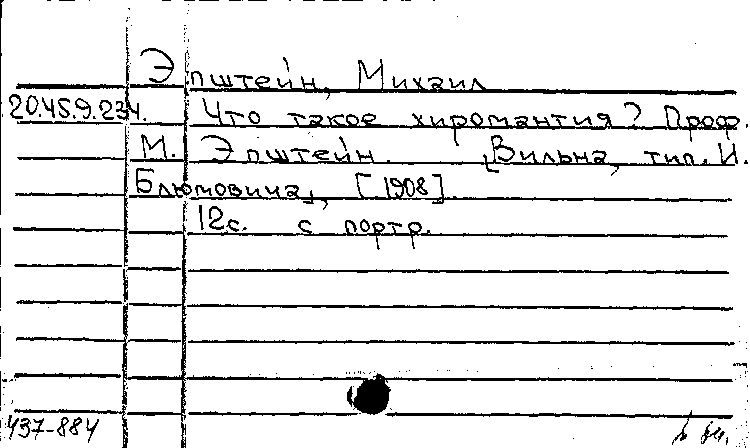 Эпштейн, Михаил
20.45.9.234. Что такое хиромантия? Проф.
М. Эпштейн. [Вильна, тип. И.
Блюмовича], [1908].
12с. с портр.
437-884